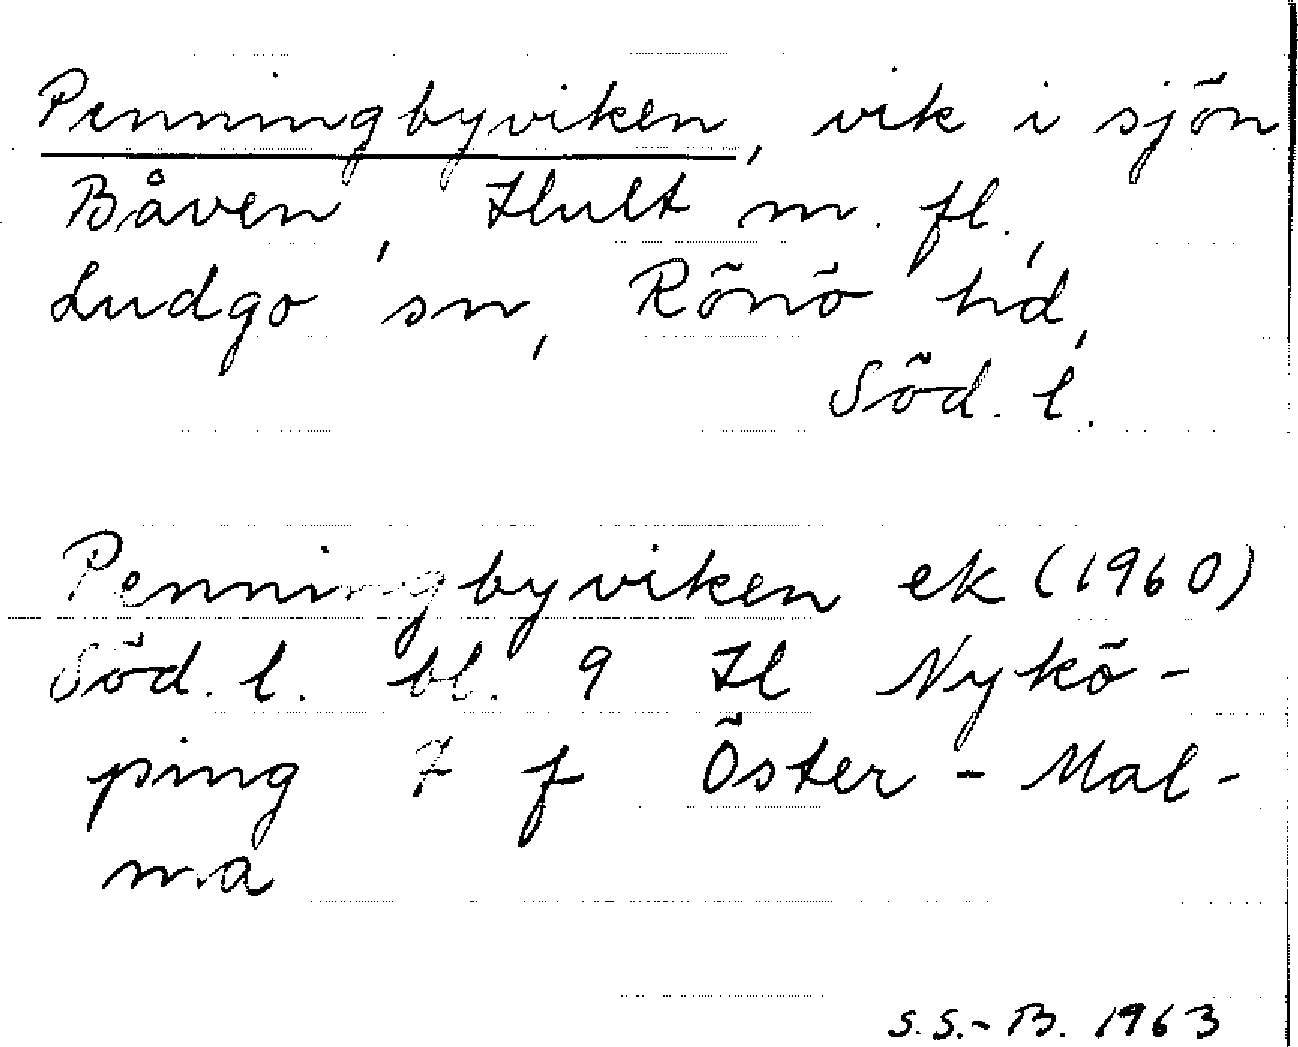 Penningbyviken, vik i sjön
Båven, Hult m. fl.,
Ludgo sn, Rönö hd,
Söd. l.
Penningbyviken ek (1960)
Söd. l. bl. 9 H Nykö-
ping 7 f Öster-Mal-
ma
S.S.-B. 1963